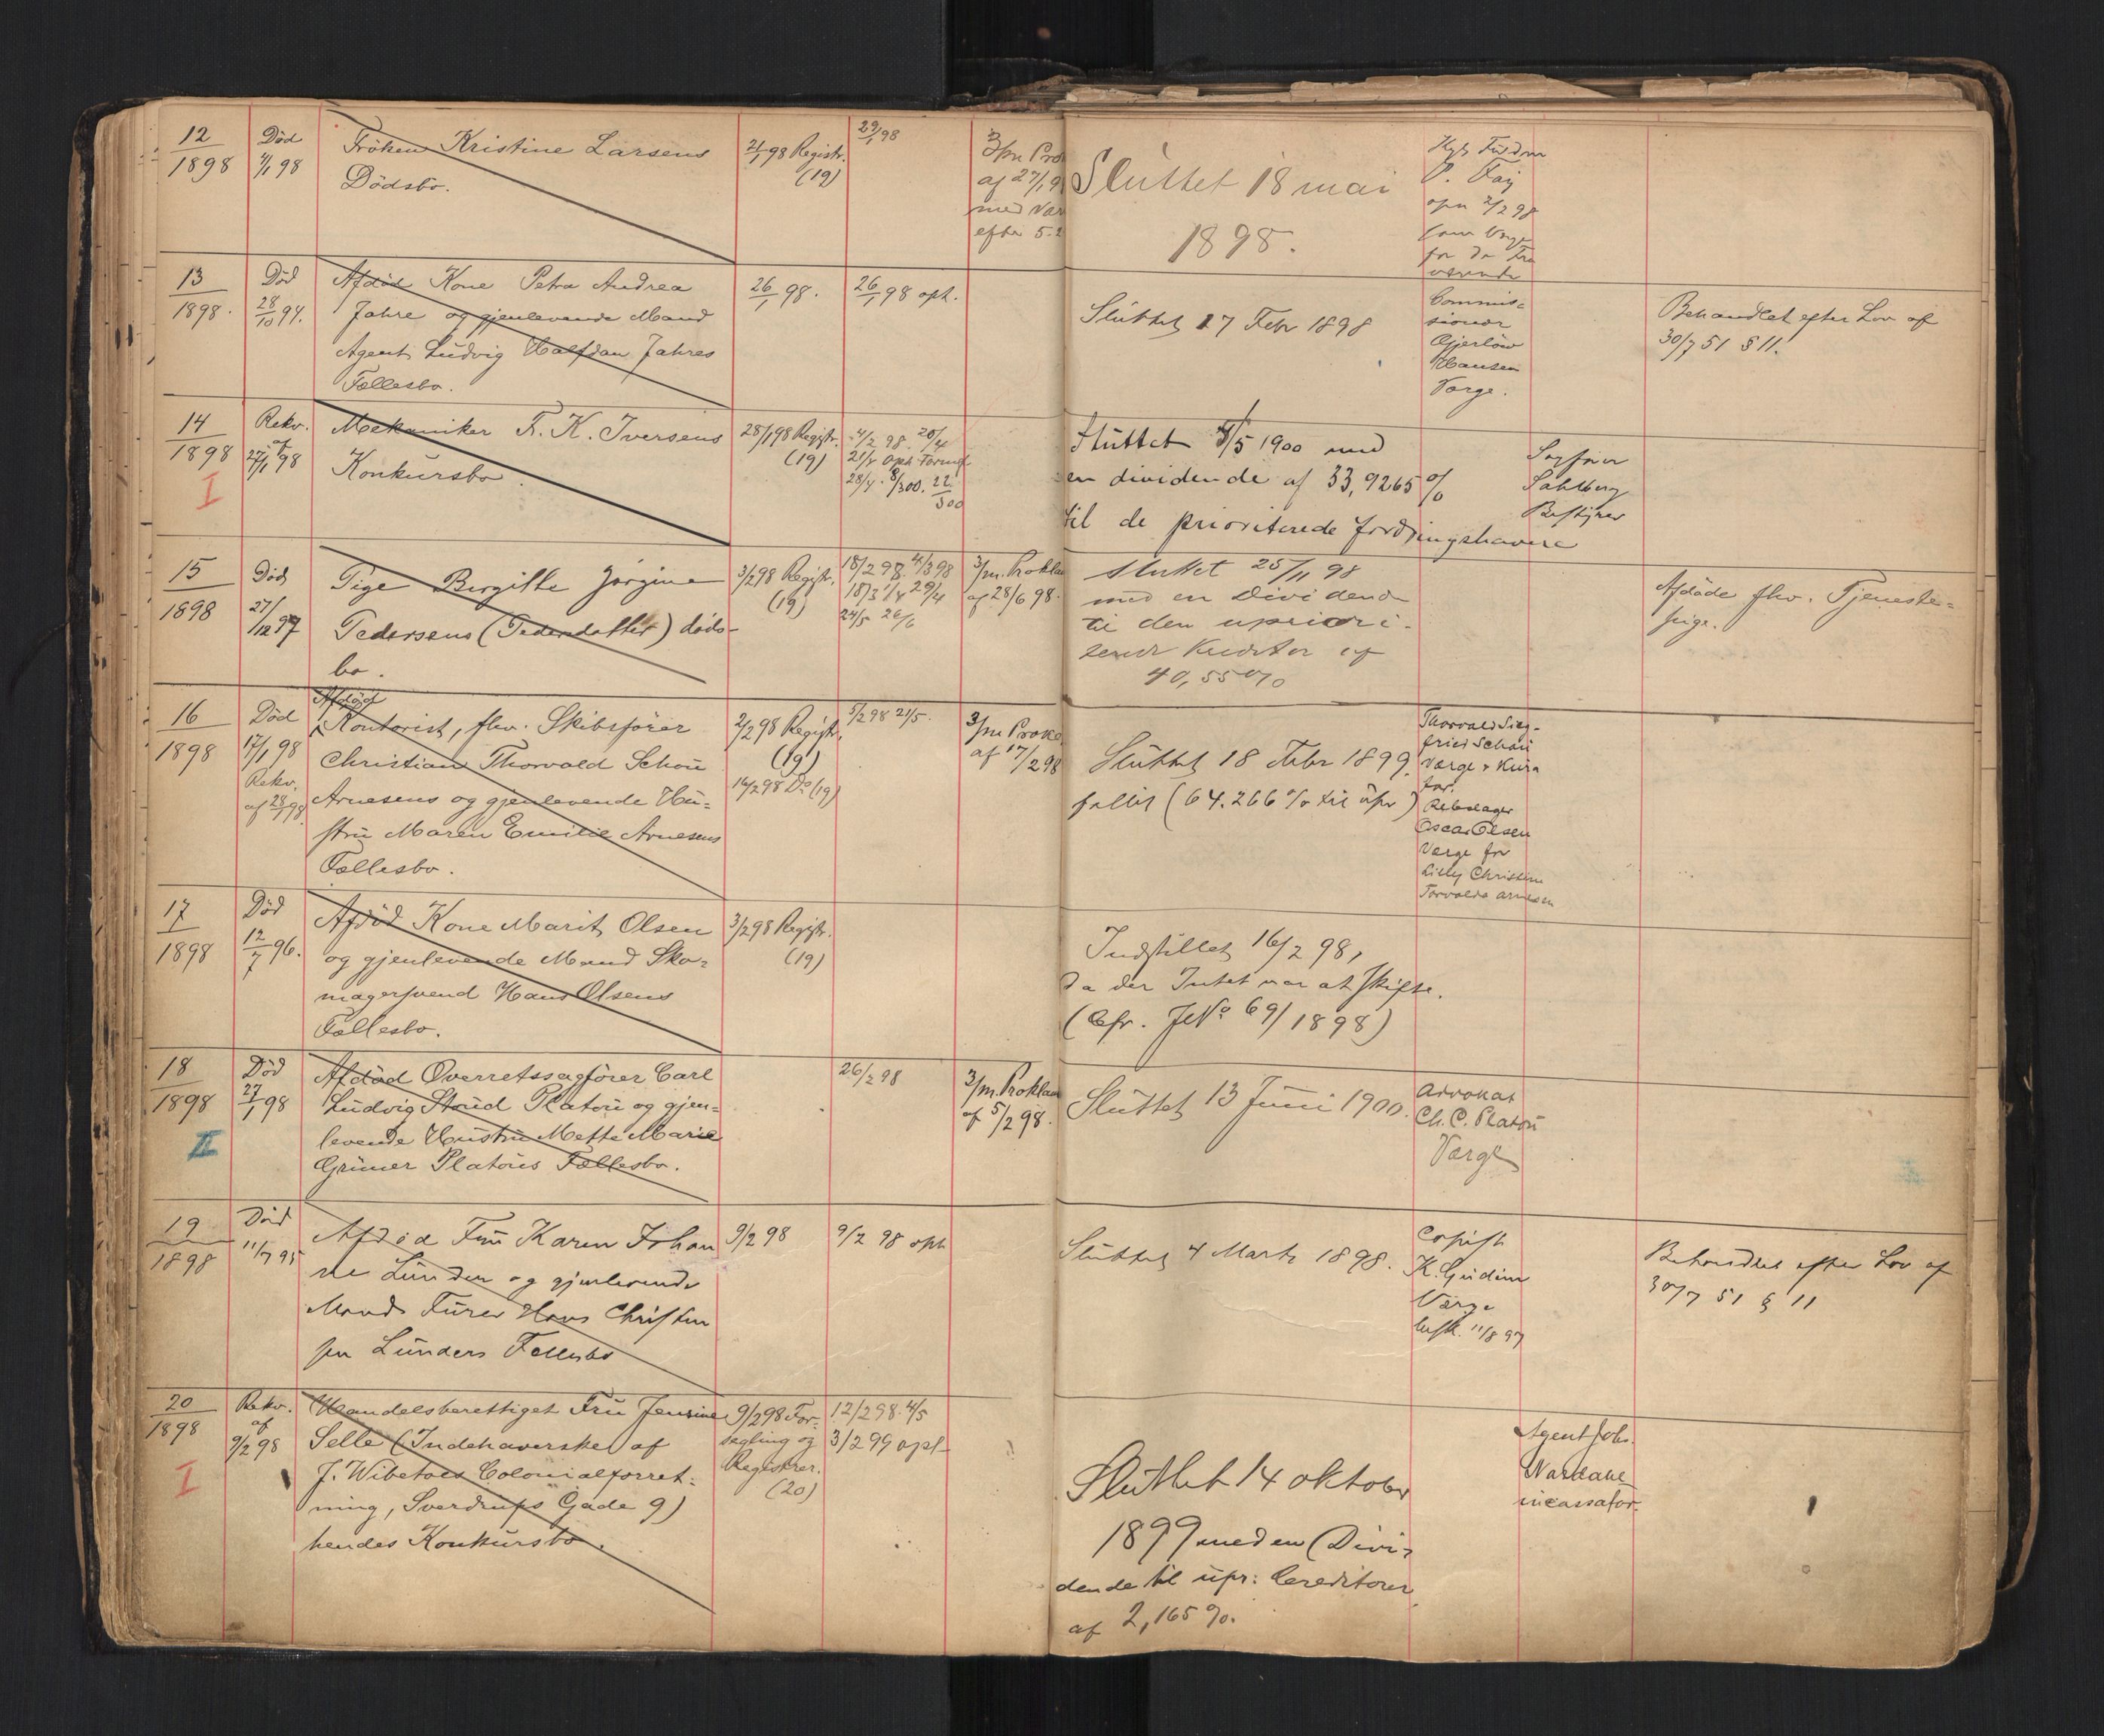 12
1898
Död
4/1 98
Fröken Kristine Larsens
Dödsbo.
21/1 98 Registr.
(19)
29/1 98
3/m Pro
af 27/1 9
med Var
efter 5.
Sluttet 18 mai
1898.
opn 2/2 98
som Værge
13
1898.
Död
28/10 94.
Afdöd Kone Petra Andrea
Jahre og gjenlevende Mand
Agent Ludvig Halfdan Jahres
Fællesbo.
26/1 98.
26/1 98 oph.
Sluttet 17 Febr 1898
Commis-
sionær
Gjerlöw
Hansen
Værge.
Behandlet efter Lov af
30/7 51 § 11.
14
1898
I
Rekv.
af
27/1 98
Mekaniker F. K. Iversens
Konkursbo.
28/1 98 Registr.
(19)
4/2 98.
Sluttet 8/5 1900 med
en dividende af 33,9265 %
til de prioriterede fordringshavere
Sagförer
Sahlberg
Bestyrer
15
1898
Död
27/12 97
Pige Bergitte Jörgine
Pedersens (Pedersdatter) döds-
bo.
3/2 98 Registr.
(19)
18/2 98. 4/3 98
18/3 1/4 29/4
24/5 26/6
3/m. Prokla
af 28/6 98.
sluttet 25/11 98
med en Dividende
til den upriori-
terede Kreditor af
40,55 %
Afdöde fhv. Tjeneste-
pige.
16
1898
Död
17/1 98
Rekv.
af 28/1 98.
Afdöd
Kontorist, fhv. Skibsförer
Christian Thorvald Schou
Arnesens og gjenlevende Hu-
stru Maren Emilie Arnesens
Fællesbo.
2/2 98 Registr.
(19)
16/2 98 Do (19)
5/2 98 21/5.
3/m Prokl
af 17/2 98
Sluttet 18 Febr 1899.
fallit (64.266 % til upr)
Thorvald Sieg-
fried Schou
Værge & Kura
tor.
Rebslager
Oscar Olsen
Værge for
Lilly Christine
Torvalda Arnesen
17
1898
Död
12/7 96.
Afdöd Kone Marit Olsen
og gjenlevende Mand Sko-
magersvend Hans Olsens
Fællesbo.
3/2 98 Registr.
(19)
Indstillet 16/2 98,
da der Intet var at skifte.
(Cfr. JNo 69/1898)
18
1898
II
Död
27/1 98
Afdöd Overretssagförer Carl
Ludvig Stoud Platou og gjen-
levende Hustru Mette Marie
Grüner Platous Fællesbo.
26/2 98
3/m. Proklam
af 5/2 98.
Sluttet 13 Juni 1900.
Advokat
Ch. C. Platou
Værge
19
1898
Död
11/7 95
Afdöd Fru Karen Johan
ne Lunder og gjenlevende
Mand Furer Hans Christen
sen Lunders Fellesbo
9/2 98
9/2 98 oph
Sluttet 4 Marts 1898.
Copist
K. Gudim
Værge
besk. 11/8 97
Behandlet efter Lov af
30/7 51 § 11
20
1898
I
Rekv.
af
9/2 98
Handelsberettiget Fru Jensine
Selle (Indehaverske af
J. Wibetoes Colonialforret-
ning, Sverdrups Gade 9)
hendes Konkursbo.
9/2 98 For-
segling og
Registrer.
(20)
12/2 98. 4/5
3/2 99 oph
Sluttet 14 oktober
1899 med en Divi-
dende til upr: Creditorer
af 2,165 %.
Agent Johs.
Nardahl
incassator.